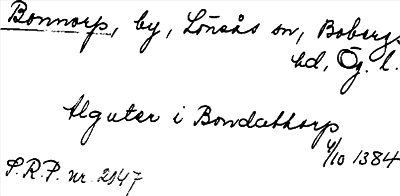 Bonnorp, by, Lönsås sn, Bobergs
hd, Ög. l.
Algutær i Bondæthorp
4/10 1384
S.R.P. nr 2147